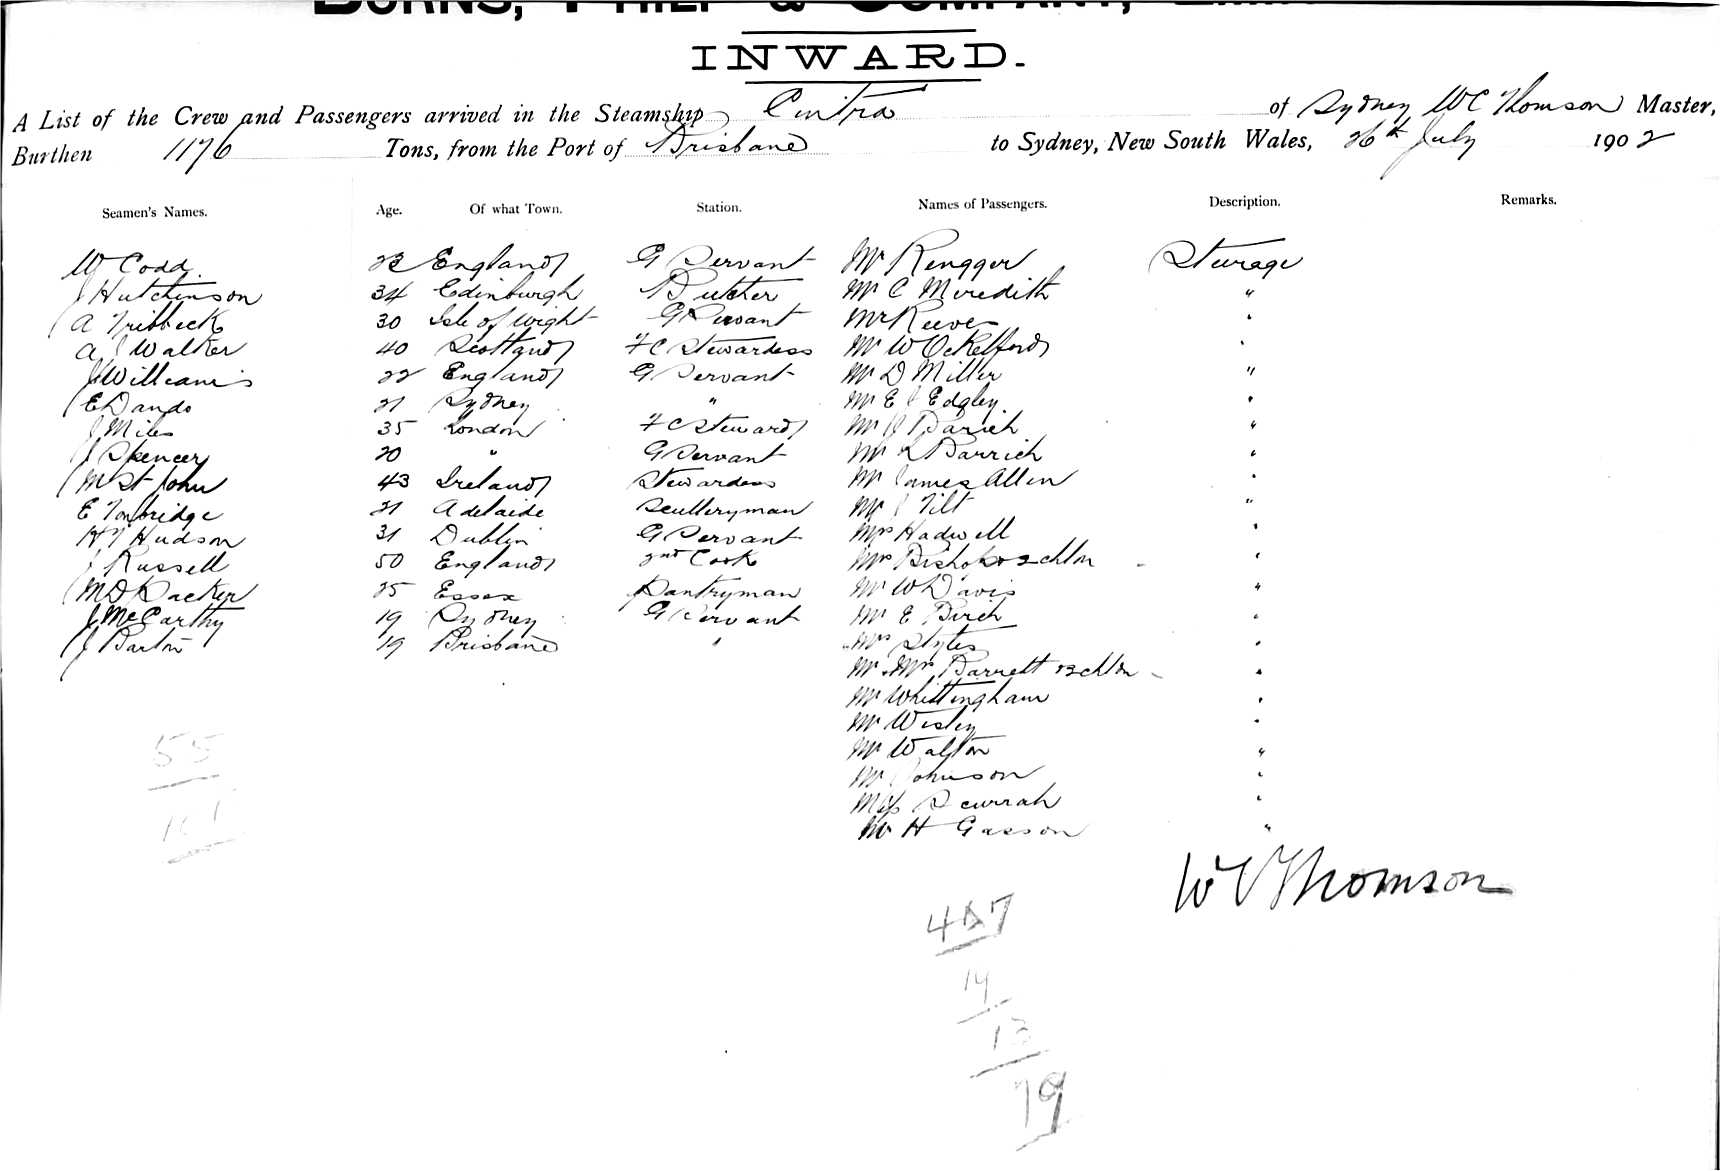 BURNS, PHILP & COMPANY,
INWARD.
A List of the Crew and Passengers arrived in the Steamship Cintra of Sydney, WC Thomson Master,
Burthen 1176 Tons, from the Port of Brisbane to Sydney, New South Wales, 26th July 1902
Seamen's Names. Age. Of what Town. Station. Names of Passengers. Description. Remarks.
W Codd. 23 England G Servant Mr Rengger Steerage
J Hutchinson 34 Edinburgh Butcher Mr C Meredith "
A Tribbeck 30 Isle of Wight G Servant Mr Reeves "
A J Walker 40 Scotland F C Stewardess Mr W Ockelford "
J Williams 22 England G Servant Mr D Miller "
E Dando 21 Sydney " Mr E J Edgley "
J Miles 35 London F C Steward Mr J Barich "
J Spencer 20 " G Servant Mr L Barrich "
M St John 43 Ireland Stewardess Mr James Allen "
E Tonbridge 21 Adelaide Sculleryman Mr J Tilt "
H T Hudson 31 Dublin G Servant Mrs Hadwell "
J Russell 50 England 2nd Cook Mrs Bishop & 2 chldn "
M D Packer 25 Essex Pantryman Mr W Davis "
J McCarthy 19 Sydney G Servant Mr E Birch "
J Barton 19 Brisbane " Mrs Styles "
Mr & Mrs Barrett & 2 chldn "
Mr Whittingham "
Mr Wesley "
Mr Walton "
Mr Johnson "
Miss Scurrah "
Mr H Gasson "
55
WC Thomson
14
13
79